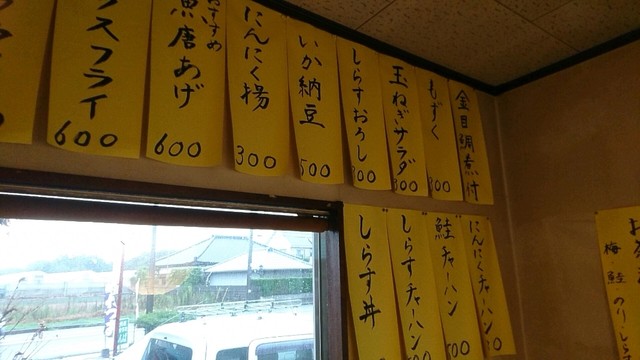 スフライ
600
おすすめ
魚唐あげ
600
にんにく揚
300
いか納豆
500
しらすおろし
300
玉ねぎサラダ
300
もずく
300
金目鯛煮付
しらす丼
しらすチャーハン
鮭チャーハン
500
にんにくチャーハン
梅・鮭